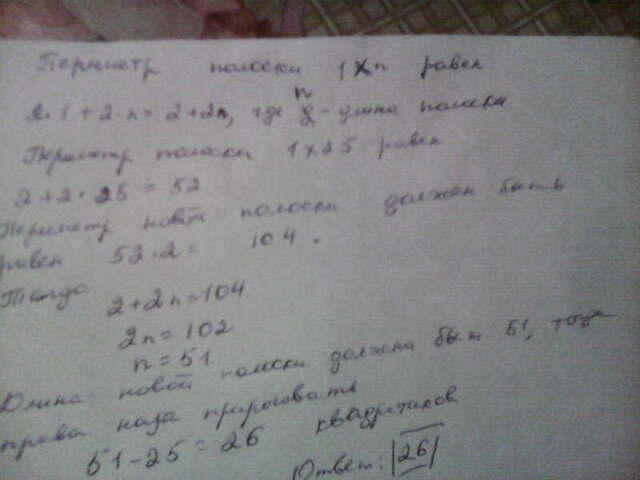 Периметр полоски 1×n равен
2·1+2·n=2+2n, где n - длина полоски
Периметр полоски 1×25 равен
2+2·25=52
Периметр новой полоски должен быть
равен 52·2= 104.
Тогда 2+2n=104
2n=102
n=51
Длина новой полоски должна быть 51, тогда
справа надо пририсовать
51-25=26 квадратиков
Ответ: 26